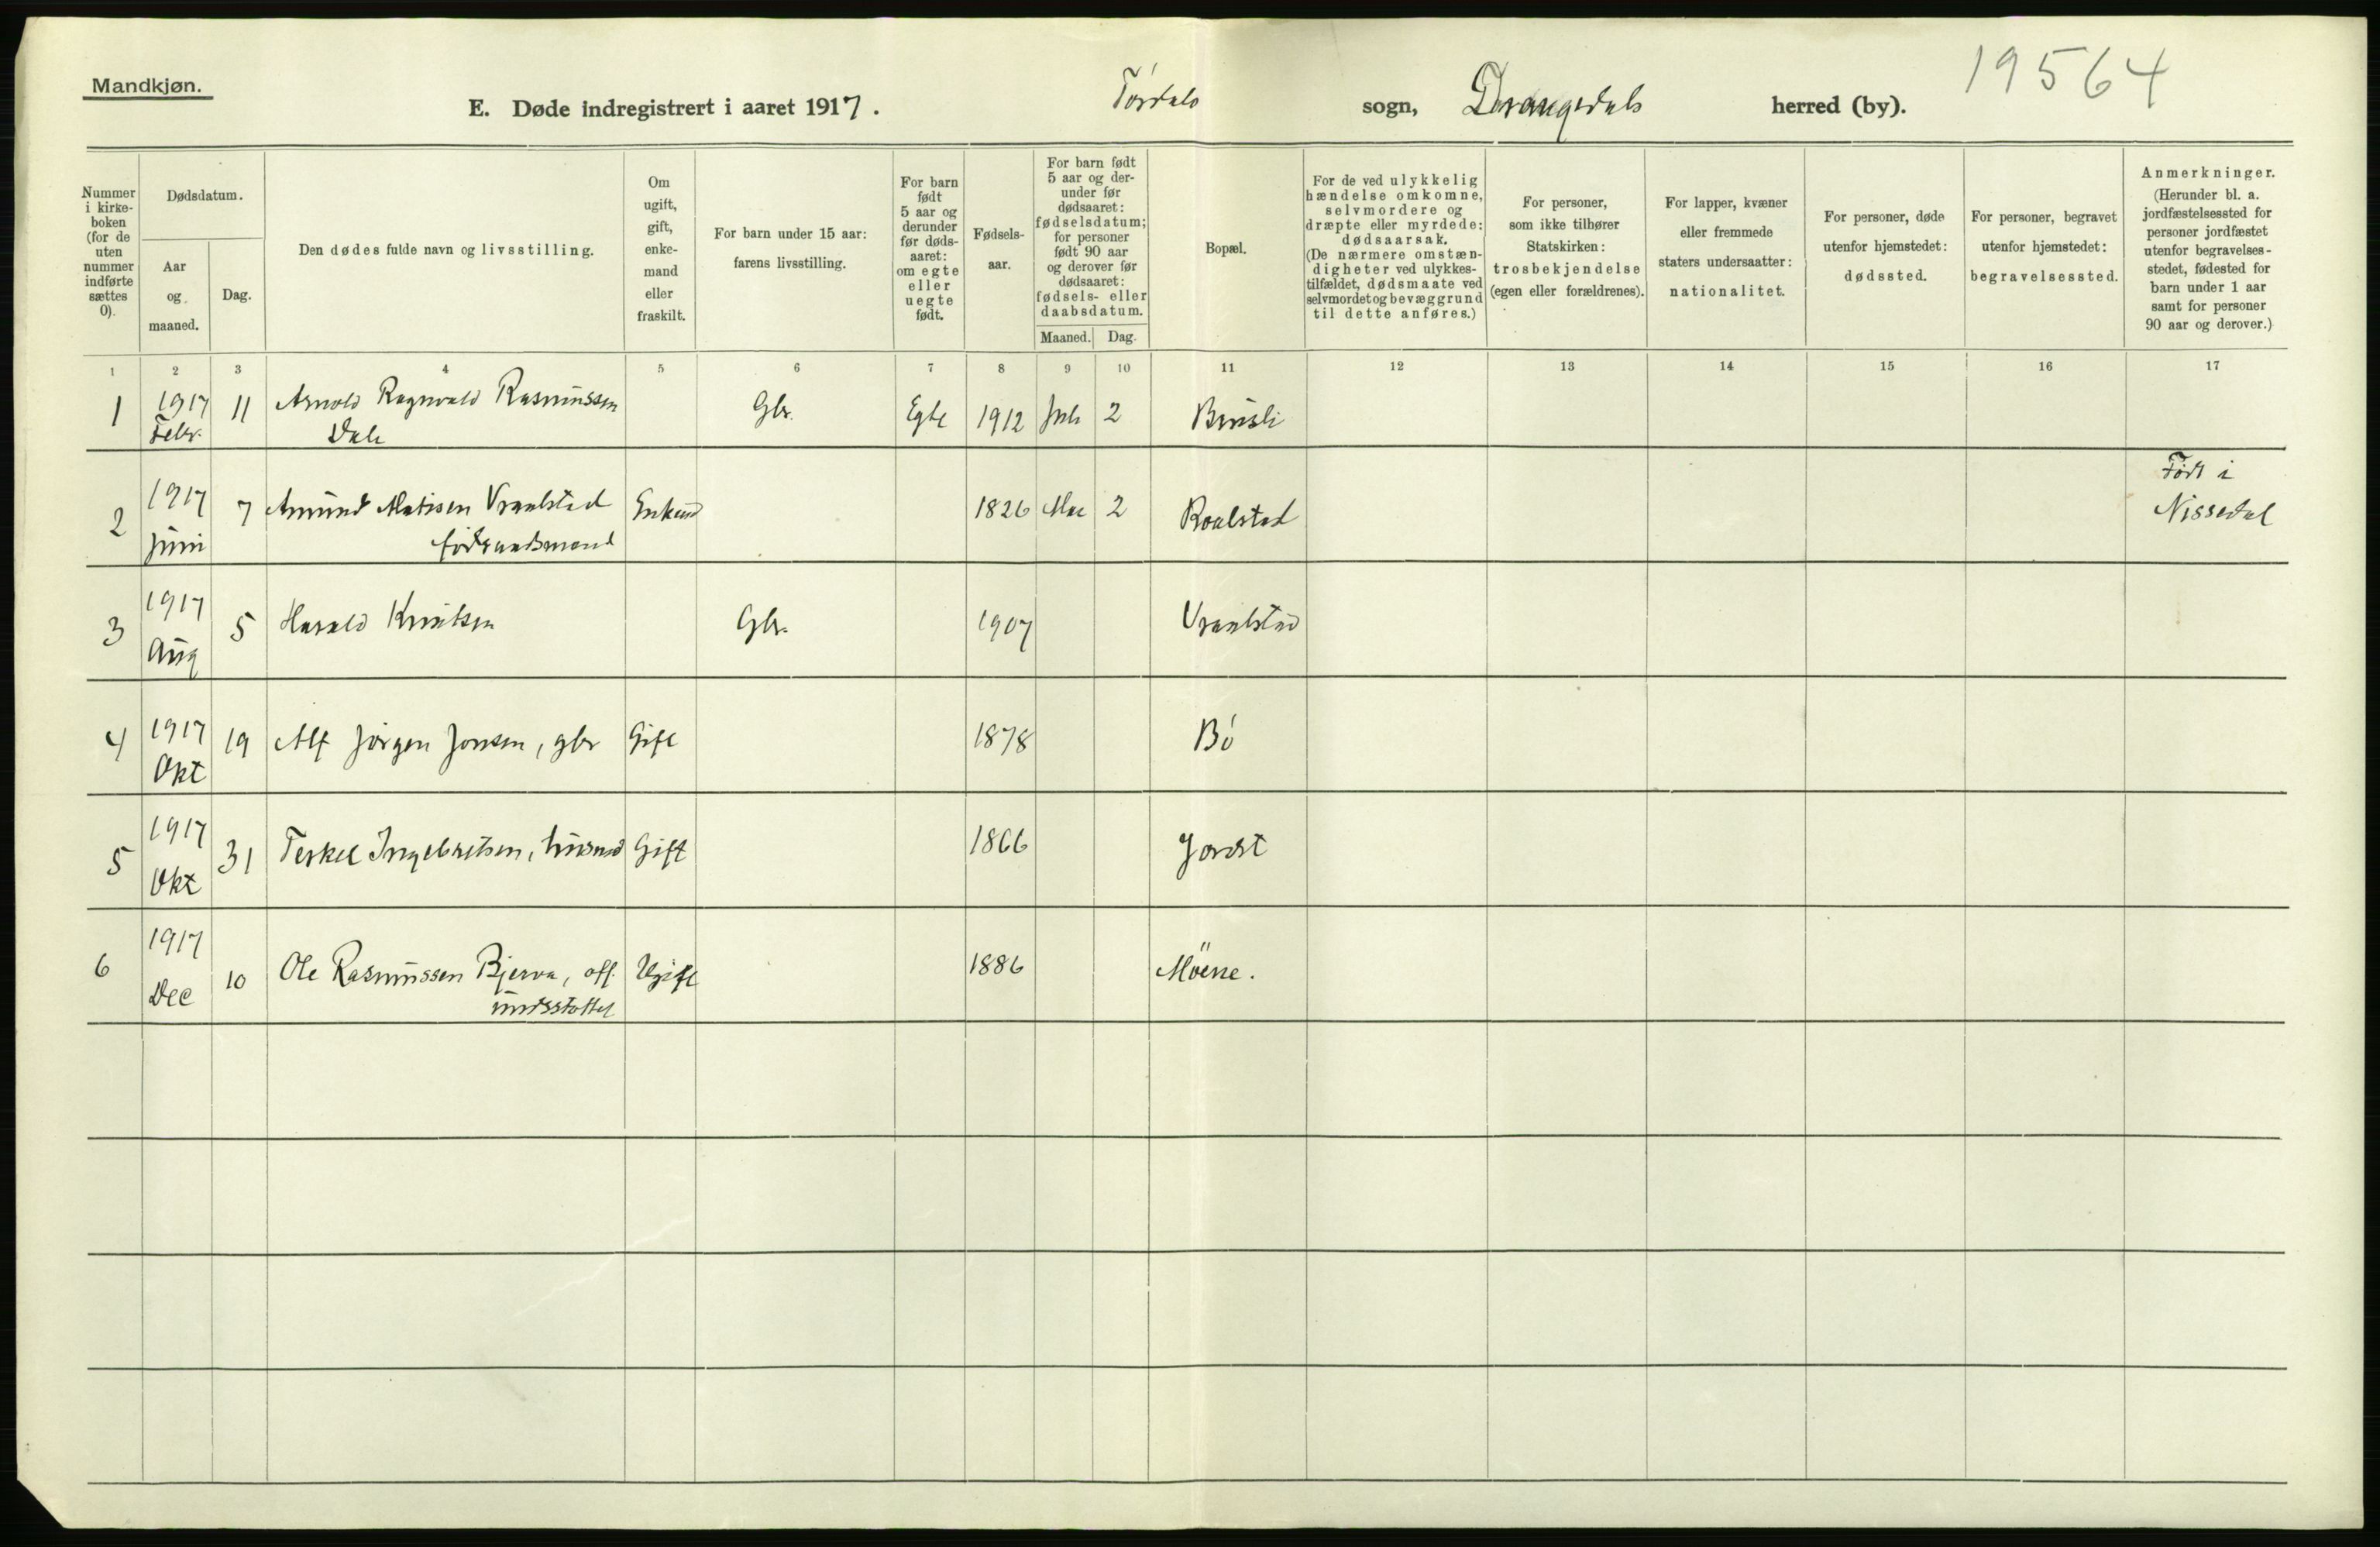 Mandkjøn.
E. Døde indregistrert i aaret 1917. Tørdals sogn, Drangedals herred (by).
19564
Nummer i kirke-boken (for de uten nummer indførte sættes 0).
Dødsdatum.
Aar og maaned.
Dag.
Den dødes fulde navn og livsstilling.
Om ugift, gift, enke-mand eller fraskilt.
For barn under 15 aar: farens livsstilling.
For barn født 5 aar og derunder før døds-aaret: om egte eller uegte født.
Fødsels-aar.
For barn født 5 aar og der-under før dødsaaret: fødselsdatum; for personer født 90 aar og derover før dødsaaret: fødsels- eller daabsdatum.
Maaned.
Dag.
Bopæl.
For de ved ulykkelig hændelse omkomne, selvmordere og dræpte eller myrdede: dødsaarsak. (De nærmere omstæn-digheter ved ulykkes-tilfældet, dødsmaate ved selvmordet og bevæggrund til dette anføres.)
For personer, som ikke tilhører Statskirken: trosbekjendelse (egen eller forældrenes).
For lapper, kvæner eller fremmede staters undersaatter: nationalitet.
For personer, døde utenfor hjemstedet: dødssted.
For personer, begravet utenfor hjemstedet: begravelsessted.
Anmerkninger. (Herunder bl. a. jordfæstelsessted for personer jordfæstet utenfor begravelses-stedet, fødested for barn under 1 aar samt for personer 90 aar og derover.)
1 2 3 4 5 6 7 8 9 10 11 12 13 14 15 16 17
1 1917 Febr. 11 Arnold Ragnvald Rasmussen Dale Gbr. Egte 1912 Juli 2 Brusli
2 1917 Juni 7 Amund Matisen Vraalstad føderaadsmand Enkem 1826 Mai 2 Roalstad Født i Nissedal
3 1917 Aug 5 Harald Knutsen Gbr. 1907 Vraalstad
4 1917 Okt 19 Alf Jørgen Jonsen, gbr Gift 1878 Bø
5 1917 Okt 31 Terkel Ingebretsen, husmd Gift 1866
6 1917 Dec 10 Ole Rasmussen Bjerva, off. undsstøttet Ugift 1886 Moene.